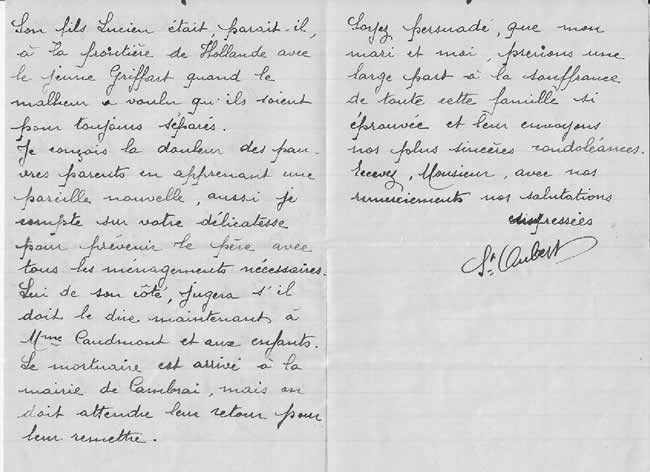 Son fils Lucien était, parait-il,
à la frontière de Hollande avec
le jeune Griffart quand le
malheur a voulu qu'ils soient
pour toujours séparés.
Je conçois la douleur des pau-
vres parents en apprenant une
pareille nouvelle, aussi je
compte sur votre délicatesse
pour prévenir le père avec
tous les ménagements nécessaires.
Lui de son côté, jugera s'il
doit le dire maintenant à
Mme Caudmont et aux enfants.
Le mortuaire est arrivé à la
mairie de Cambrai, mais on
doit attendre leur retour pour
leur remettre.
Soyez persuadé, que mon
mari et moi, prenons une
large part à la souffrance
de toute cette famille si
éprouvée et leur envoyons
nos plus sincères condoléances.
Recevez, Monsieur, avec nos
remerciements nos salutations
empressées
St Aubert